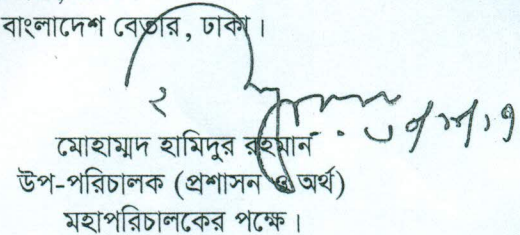 বাংলাদেশ বেতার, ঢাকা।
মোহাম্মদ হামিদুর রহমান
উপ-পরিচালক (প্রশাসন ও অর্থ)
মহাপরিচালকের পক্ষে।